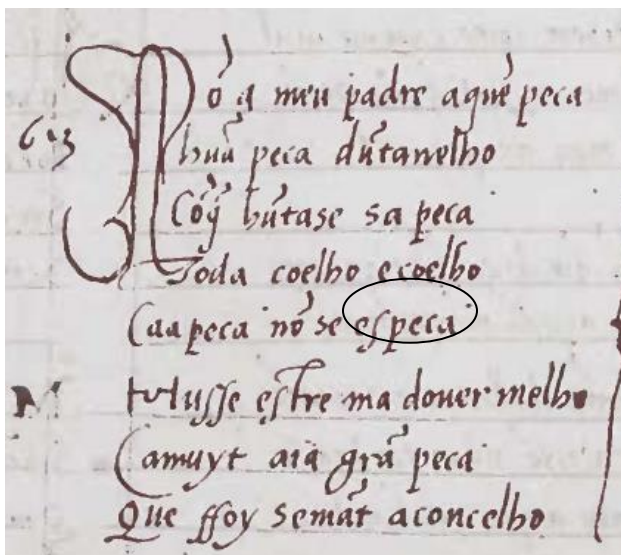 Nõ q̃ meu padre a quẽ peca
hũa peca dũtanelho
Cõ q̃ hũtase sa peca
Toda coelho e coelho
Caa peca nõ se especa
Musse estre ma douermelho
Camuyt aia grã peca
Que ffoy semãt a concelho